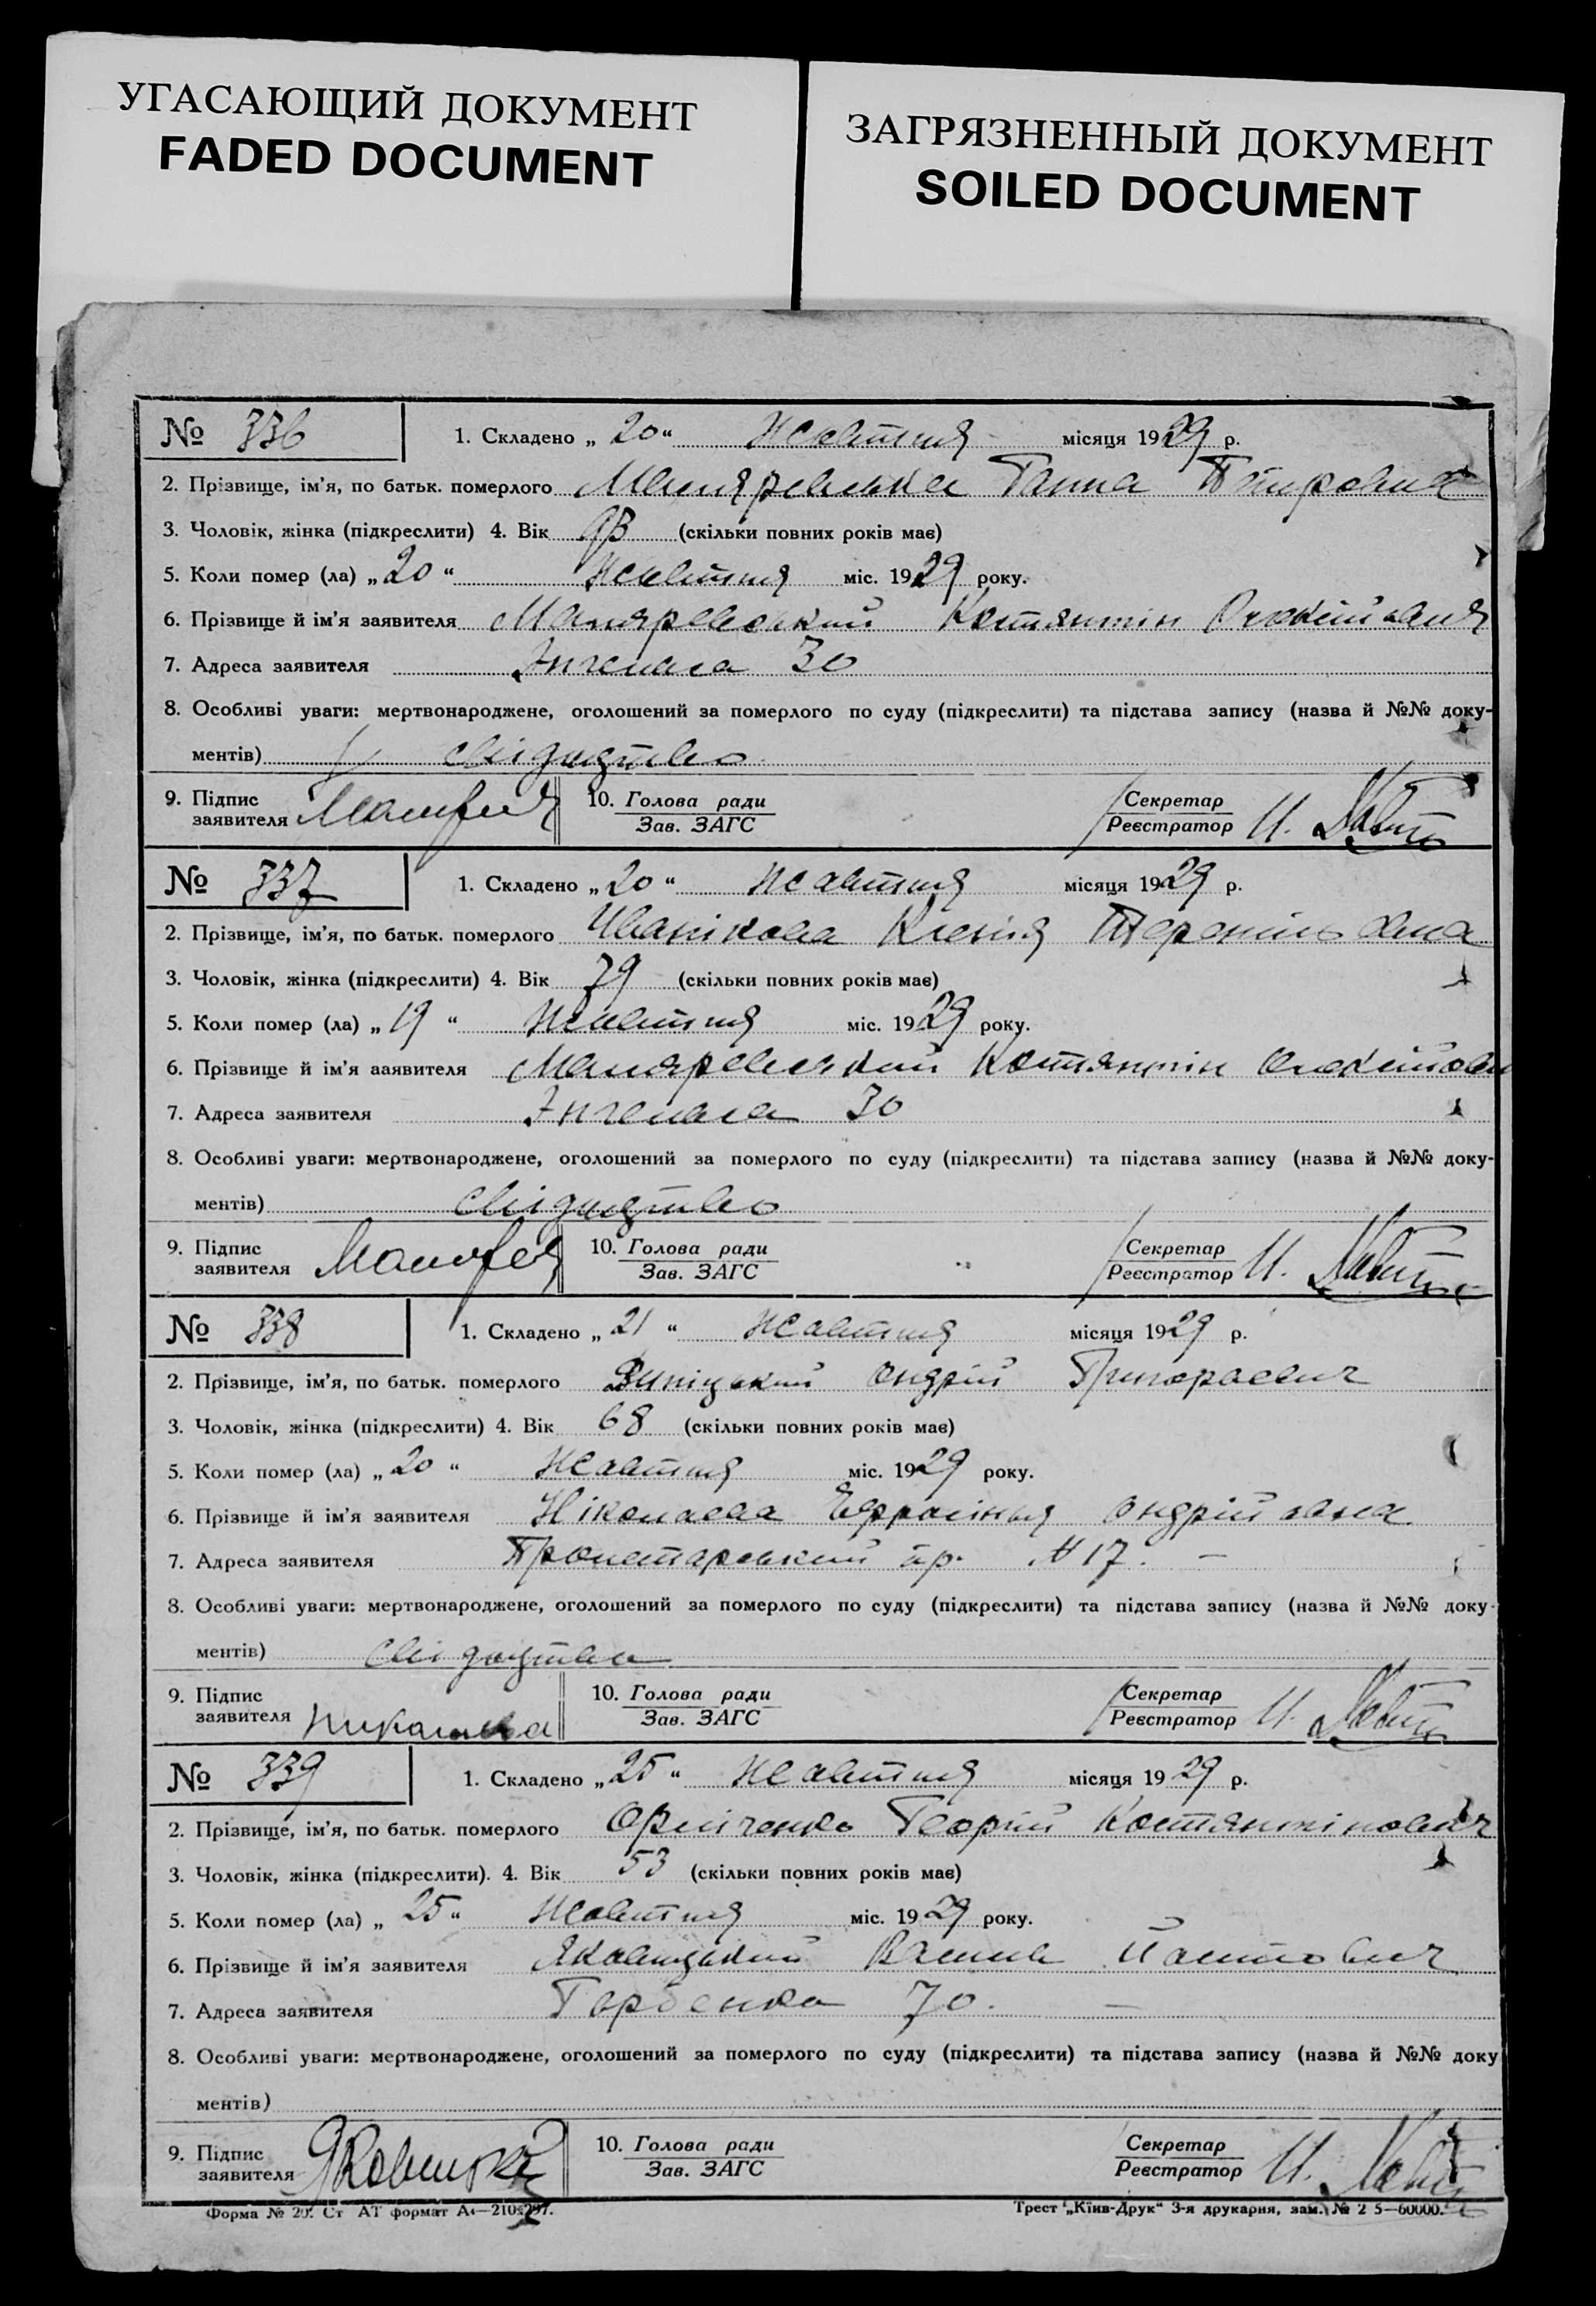 УГАСАЮЩИЙ ДОКУМЕНТ
FADED DOCUMENT
ЗАГРЯЗНЕННЫЙ ДОКУМЕНТ
SOILED DOCUMENT
№ 336 1. Складено „ 20 “ Жовтня місяця 1929 р.
2. Прізвище, ім’я, по батьк. померлого Ганна
3. Чоловік, жінка (підкреслити) 4. Вік (скільки повних років має)
5. Коли помер (ла) „ 20 “ Жовтня міс. 1929 року.
6. Прізвище й ім’я заявителя Костянтін
7. Адреса заявителя Энгельса 30
8. Особливі уваги: мертвонароджене, оголошений за померлого по суду (підкреслити) та підстава запису (назва й №№ доку-
ментів) свідоцтво
9. Підпис заявителя 10. Голова ради Зав. ЗАГС Секретар Реєстратор
№ 337 1. Складено „ 20 “ Жовтня місяця 1929 р.
2. Прізвище, ім’я, по батьк. померлого Іванікова Ксенія
3. Чоловік, жінка (підкреслити) 4. Вік 79 (скільки повних років має)
5. Коли помер (ла) „ 19 “ Жовтня міс. 1929 року.
6. Прізвище й ім’я ааявителя Костянтін
7. Адреса заявителя Энгельса 30
8. Особливі уваги: мертвонароджене, оголошений за померлого по суду (підкреслити) та підстава запису (назва й №№ доку-
ментів) свідоцтво
9. Підпис заявителя 10. Голова ради Зав. ЗАГС Секретар Реєстратор
№ 338 1. Складено „ 21 “ Жовтня місяця 1929 р.
2. Прізвище, ім’я, по батьк. померлого Андрій Григораевич
3. Чоловік, жінка (підкреслити) 4. Вік 68 (скільки повних років має)
5. Коли помер (ла) „ 20 “ Жовтня міс. 1929 року.
6. Прізвище й ім’я заявителя Ніколаева Андрійовна
7. Адреса заявителя Пролетарський пр. № 17. —
8. Особливі уваги: мертвонароджене, оголошений за померлого по суду (підкреслити) та підстава запису (назва й №№ доку-
ментів) свідоцтво
9. Підпис заявителя Николаева 10. Голова ради Зав. ЗАГС Секретар Реєстратор
№ 339 1. Складено „ 25 “ Жовтня місяця 1929 р.
2. Прізвище, ім’я, по батьк. померлого Георгій Костянтінович
3. Чоловік, жінка (підкреслити). 4. Вік 53 (скільки повних років має)
5. Коли помер (ла) „ 25 “ Жовтня міс. 1929 року.
6. Прізвище й ім’я заявителя
7. Адреса заявителя Горбенка 70. —
8. Особливі уваги: мертвонароджене, оголошений за померлого по суду (підкреслити) та підстава запису (назва й №№ доку
ментів)
9. Підпис заявителя 10. Голова ради Зав. ЗАГС Секретар Реєстратор
Форма № 20. Ст АТ формат А4—210×297. Трест „Київ-Друк“ 3-я друкарня, зам. № 2 5—60000.